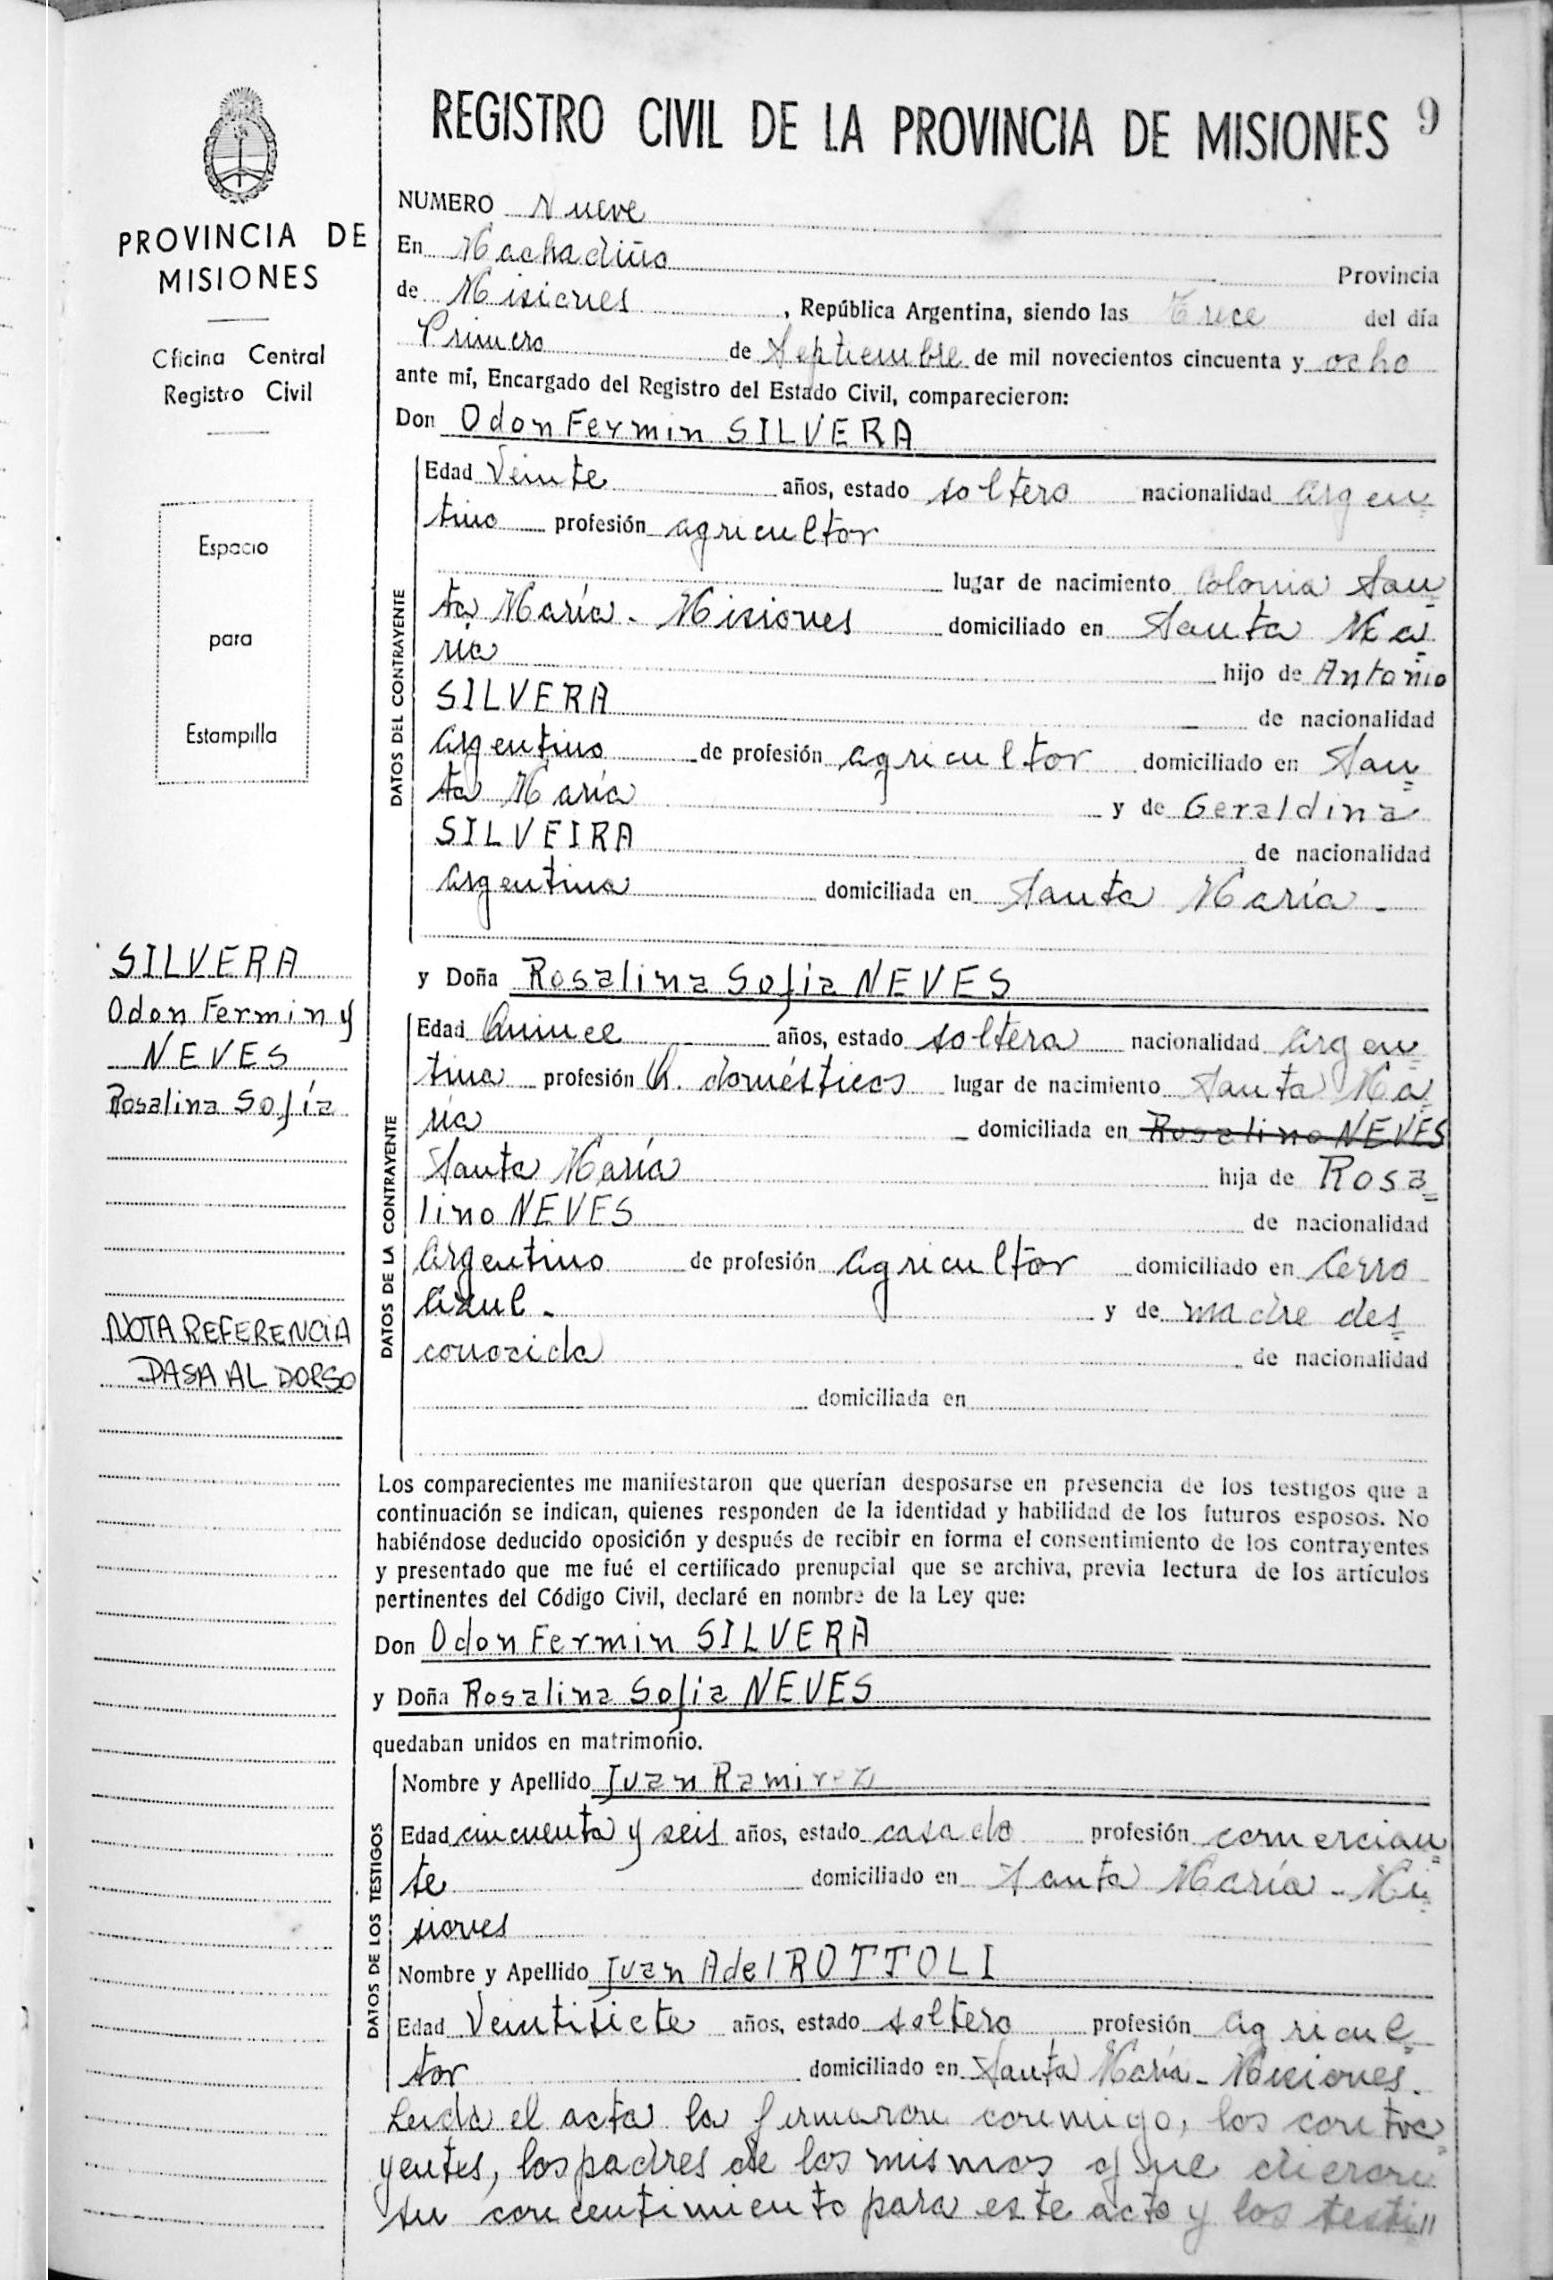 REGISTRO CIVIL DE LA PROVINCIA DE MISIONES 9
PROVINCIA DE
MISIONES
Oficina Central
Registro Civil
Espacio
para
Estampilla
SILVERA
Odon Fermin y
NEVES
Rosalina Sofia
NOTA REFERENCIA
PASA AL DORSO
NUMERO Nueve
En Machadiño Provincia
de Misiones, República Argentina, siendo las Trece del día
Primero de Septiembre de mil novecientos cincuenta y ocho
ante mí, Encargado del Registro del Estado Civil, comparecieron:
Don Odon Fermin SILVERA
DATOS DEL CONTRAYENTE
Edad Veinte años, estado soltero nacionalidad argen=
tino profesión agricultor
lugar de nacimiento Colonia San=
ta María - Misiones domiciliado en Santa Ma=
ria hijo de Antonio
SILVERA de nacionalidad
argentino de profesión agricultor domiciliado en San=
ta María y de Geraldina
SILVEIRA de nacionalidad
argentina domiciliada en Santa María -
y Doña Rosalina Sofia NEVES
DATOS DE LA CONTRAYENTE
Edad Quince años, estado soltera nacionalidad argen=
tina profesión Q. domésticos lugar de nacimiento Santa Ma=
ria domiciliada en Rosalino NEVES
Santa María hija de Rosa=
lino NEVES de nacionalidad
argentino de profesión agricultor domiciliado en Cerro
Azul - y de madre des=
conocida de nacionalidad
domiciliada en
Los comparecientes me manifestaron que querían desposarse en presencia de los testigos que a
continuación se indican, quienes responden de la identidad y habilidad de los futuros esposos. No
habiéndose deducido oposición y después de recibir en forma el consentimiento de los contrayentes
y presentado que me fué el certificado prenupcial que se archiva, previa lectura de los artículos
pertinentes del Código Civil, declaré en nombre de la Ley que:
Don Odon Fermin SILVERA
y Doña Rosalina Sofia NEVES
quedaban unidos en matrimonio.
DATOS DE LOS TESTIGOS
Nombre y Apellido Juan Ramirez
Edad cincuenta y seis años, estado casado profesión comercian=
te domiciliado en Santa María - Mi=
siones
Nombre y Apellido Juan Adel ROTTOLI
Edad Veintisiete años, estado soltero profesión agricul=
tor domiciliado en Santa María - Misiones.
Leida el acta la firmaron conmigo, los contra=
yentes, los padres de los mismos que dieron
su concentimiento para este acto y los testi"